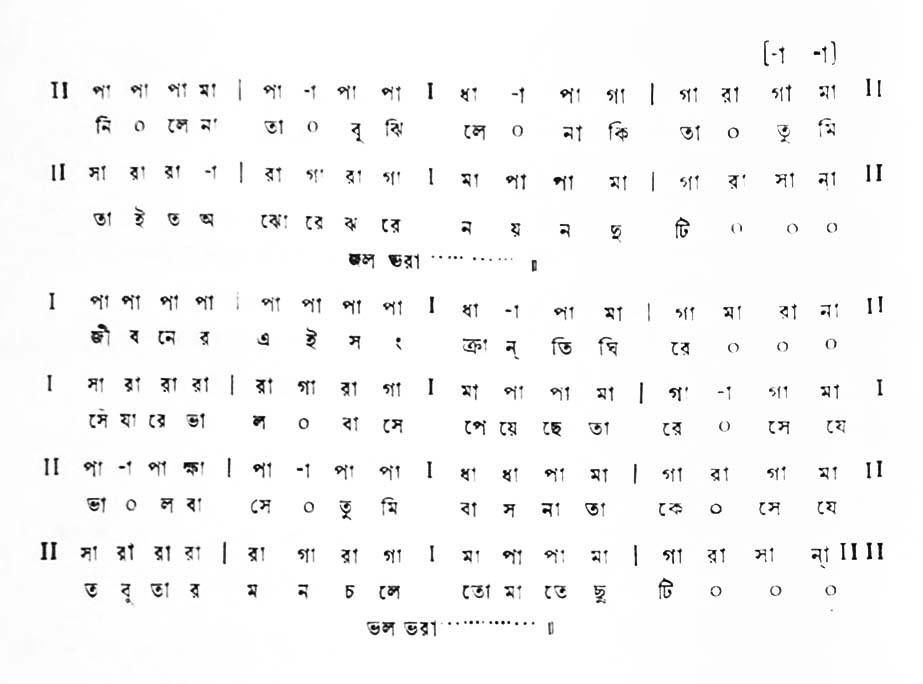 [-া -া]
II পা পা পা মা | পা -া পা পা I ধা -া পা গা | গা রা গা মা II
নি ০ লে না তা ০ বু ঝি লে ০ না কি তা ০ তু মি
II সা রা রা -া | রা গা রা গা I মা পা পা মা | গা রা সা না্ II
তা ই ত অ ঝো রে ঝ রে ন য় ন দু টি ০ ০ ০
জল ভরা ............ ॥
I পা পা পা পা | পা পা পা পা I ধা -া পা মা | গা মা রা না II
জী ব নে র এ ই স ং ক্রা ন্ তি ঘি রে ০ ০ ০
I সা রা রা রা | রা গা রা গা I মা পা পা মা | গা -া গা মা I
সে যা রে ভা ল ০ বা সে পে য়ে ছে তা রে ০ সে যে
II পা -া পা ক্ষা | পা -া পা পা I ধা ধা পা মা | গা রা গা মা II
ভা ০ ল বা সে ০ তু মি বা স না তা কে ০ সে যে
II সা রা রা রা | রা গা রা গা I মা পা পা মা | গা রা সা ন্া II II
ত বু তা র ম ন চ লে তো মা তে ছু টি ০ ০ ০
ভল ভরা ............... ॥